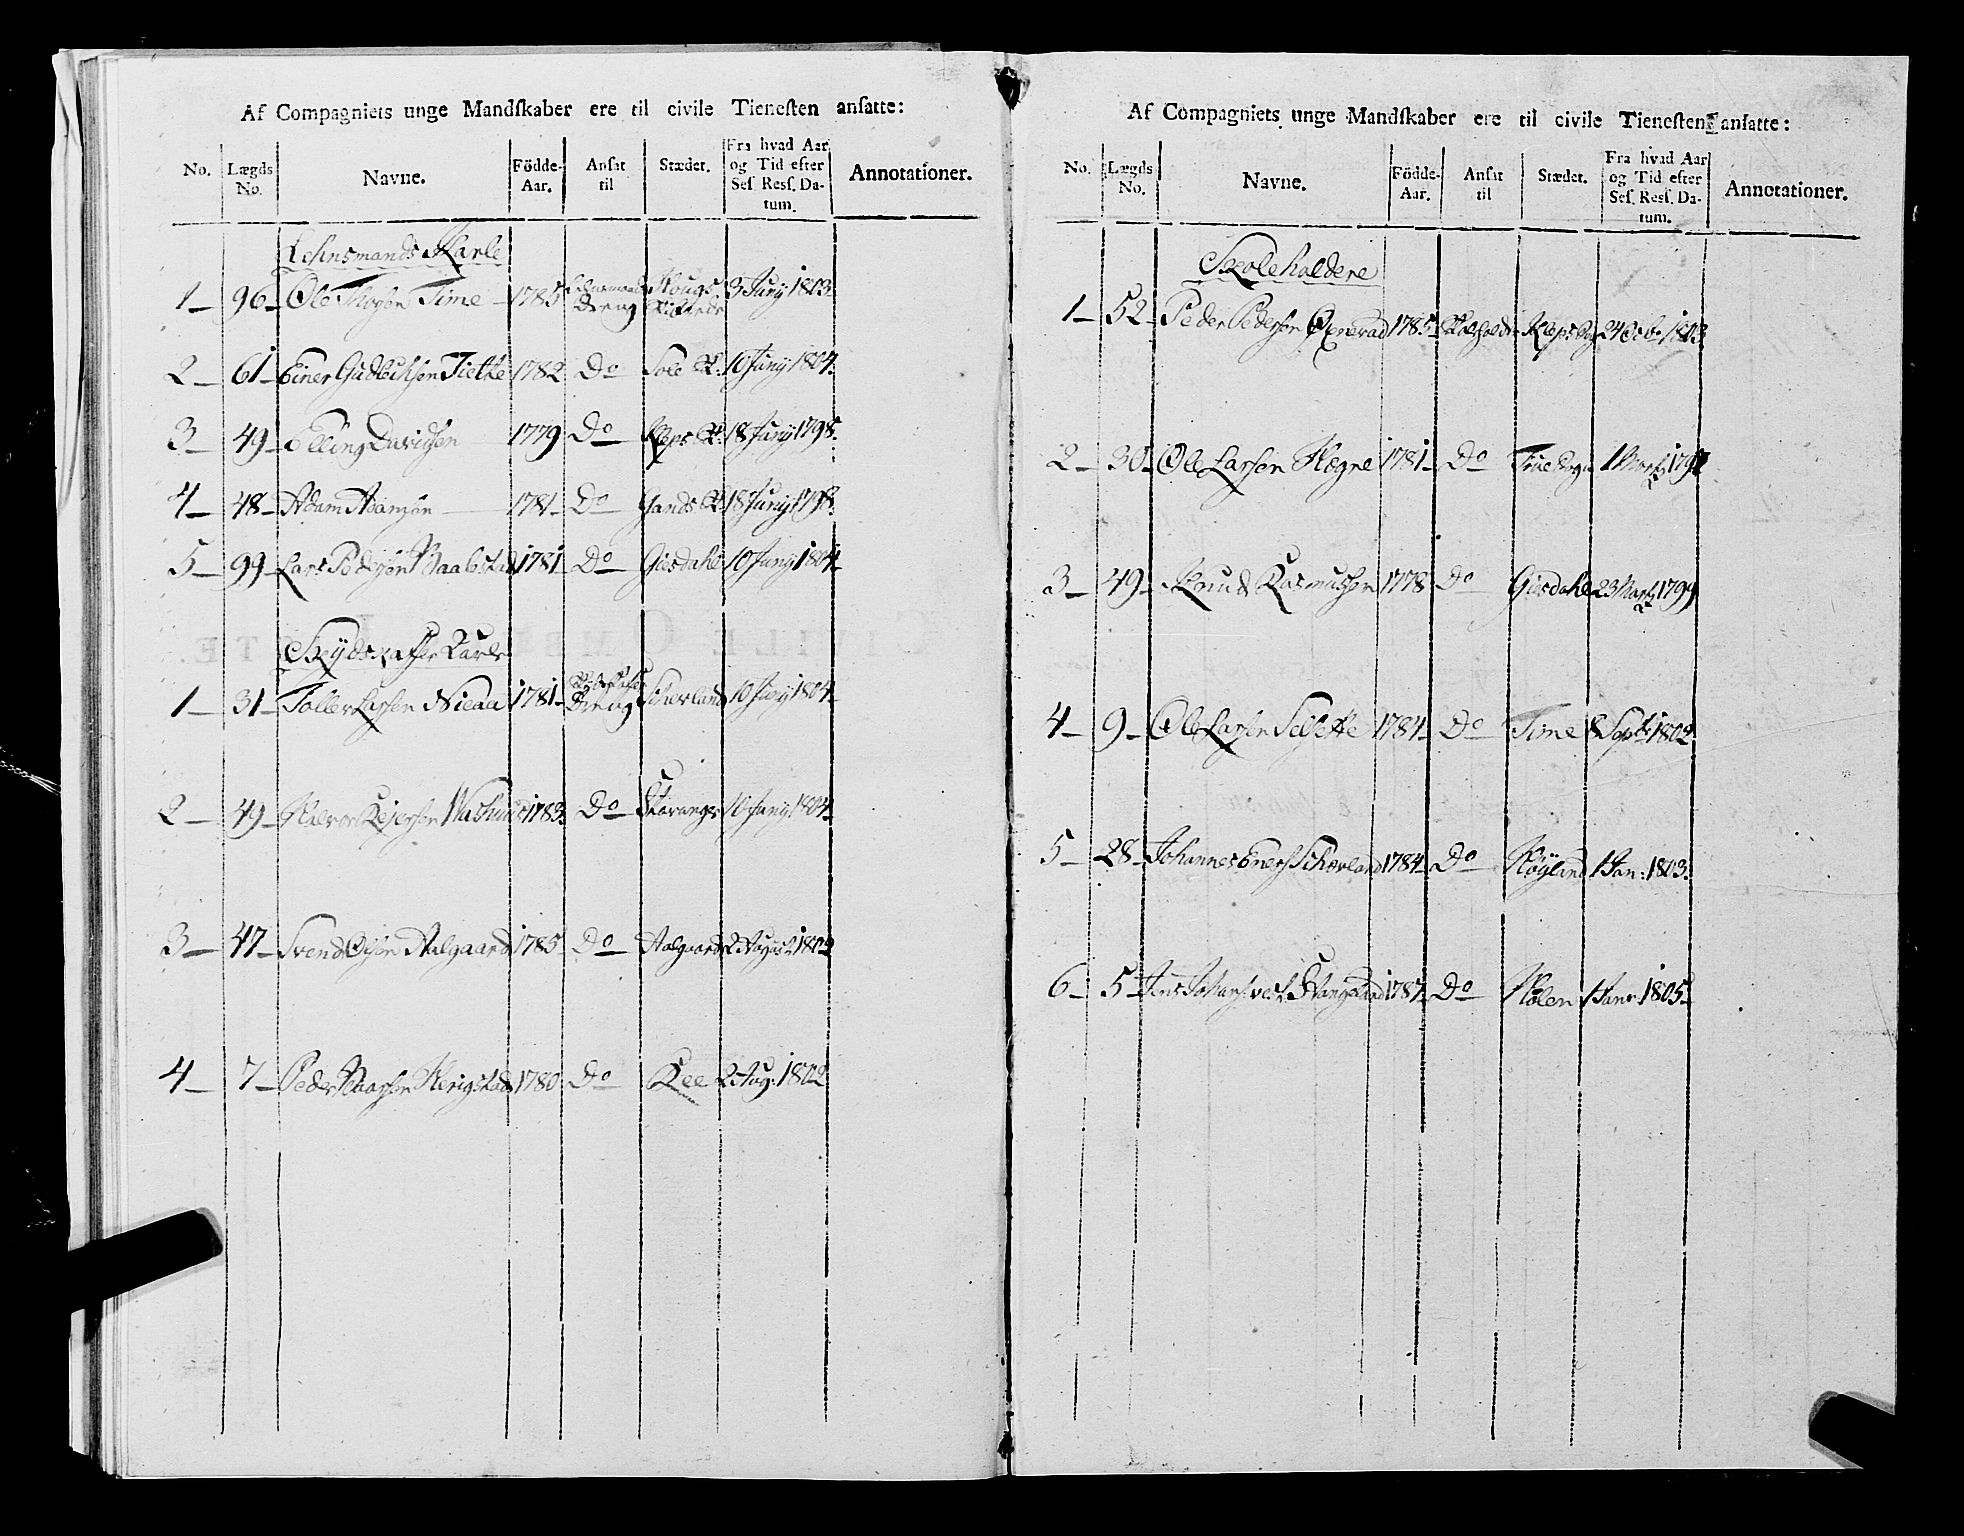 Af Compagniets unge Mandſkaber ere til civile Tieneſten anſatte:
No. Lægds No. Navne. Födde-Aar. Anſat til Stædet. Fra hvad Aar og Tid efter Seſ. Reſſ. Datum. Annotationer.
Lehnsmands Karle
1 96 Ole Thogsøn Time 1785 Lehnsmands Dreng 3 Juny 1803
2 61 Einer 1782 Do Sole 10 Juny 1804
3 49 Elling Davidsen 1779 Do Kleps 18 Juny 1798
4 48 Adam Adamsøn 1781 Do Gands 18 Juny 1798
5 99 Lars Pedersøn 1781 Do Giesdahl 10 Juny 1804
Skydskaffer Karle
1 31 Tollev Larsen Nieaa 1781 Dreng Scherland 10 Juny 1804
2 49 Halvor 1783 Do Stavanger 10 Juny 1804
3 47 Svend Olsøn Aalgaard 1785 Do Aalgaard 2 August 1802
4 7 Peder 1780 Do Kee 2 Aug: 1802
Af Compagniets unge Mandſkaber ere til civile Tieneſten anſatte:
No. Lægds No. Navne. Födde-Aar. Anſat til Stædet. Fra hvad Aar og Tid efter Seſ. Reſſ. Datum. Annotationer.
Skoleholdere
1 52 Peder Pedersen 1785 Kleps 1803
2 30 Ole Larsen Hægne 1781 Do 1
3 49 Knud Rasmussen 1778 Do Giesdahl 23 Marty 1799
4 9 Ole Larsen 1784 Do Time 8 Septr 1802
5 28 Johannes Scherland 1784 Do Høyland 1 Jan: 1803
6 5 Jens 1787 Do Holen 1 Janr 1805